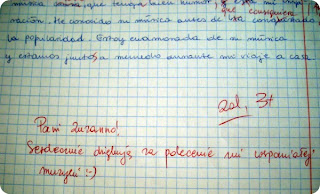 música
que tenga buen humor
que consiguiera
mación. He conocido su música antes de
la popularidad. Estoy enamorada de su música
y estamos juntos a menudo durante mi viaje a casa
dst, 3+
Pani Zuzanno!
Serdecznie dziękuję za polecenie mi wspaniałej
muzyki :-)